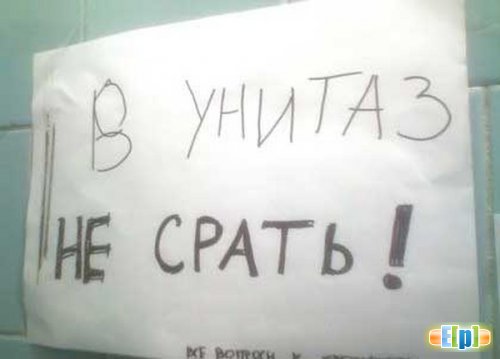 В УНИТАЗ
НЕ СРАТЬ!
ВСЕ ВОПРОСЫ К
E[p]